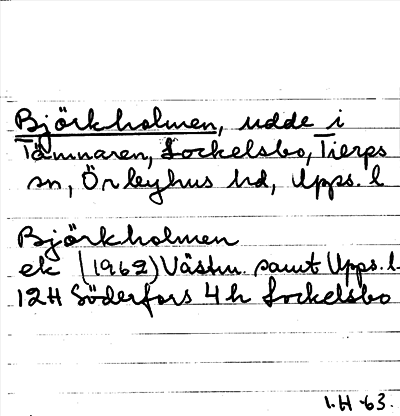 Björkholmen, udde i
Tämnaren, Sockelsbo, Tierps
sn, Örbyhus hd, Upps. l
Björkholmen
ek (1962) Västm. samt Upps. l.
12H Söderfors 4h Sockelsbo
I.H -63.